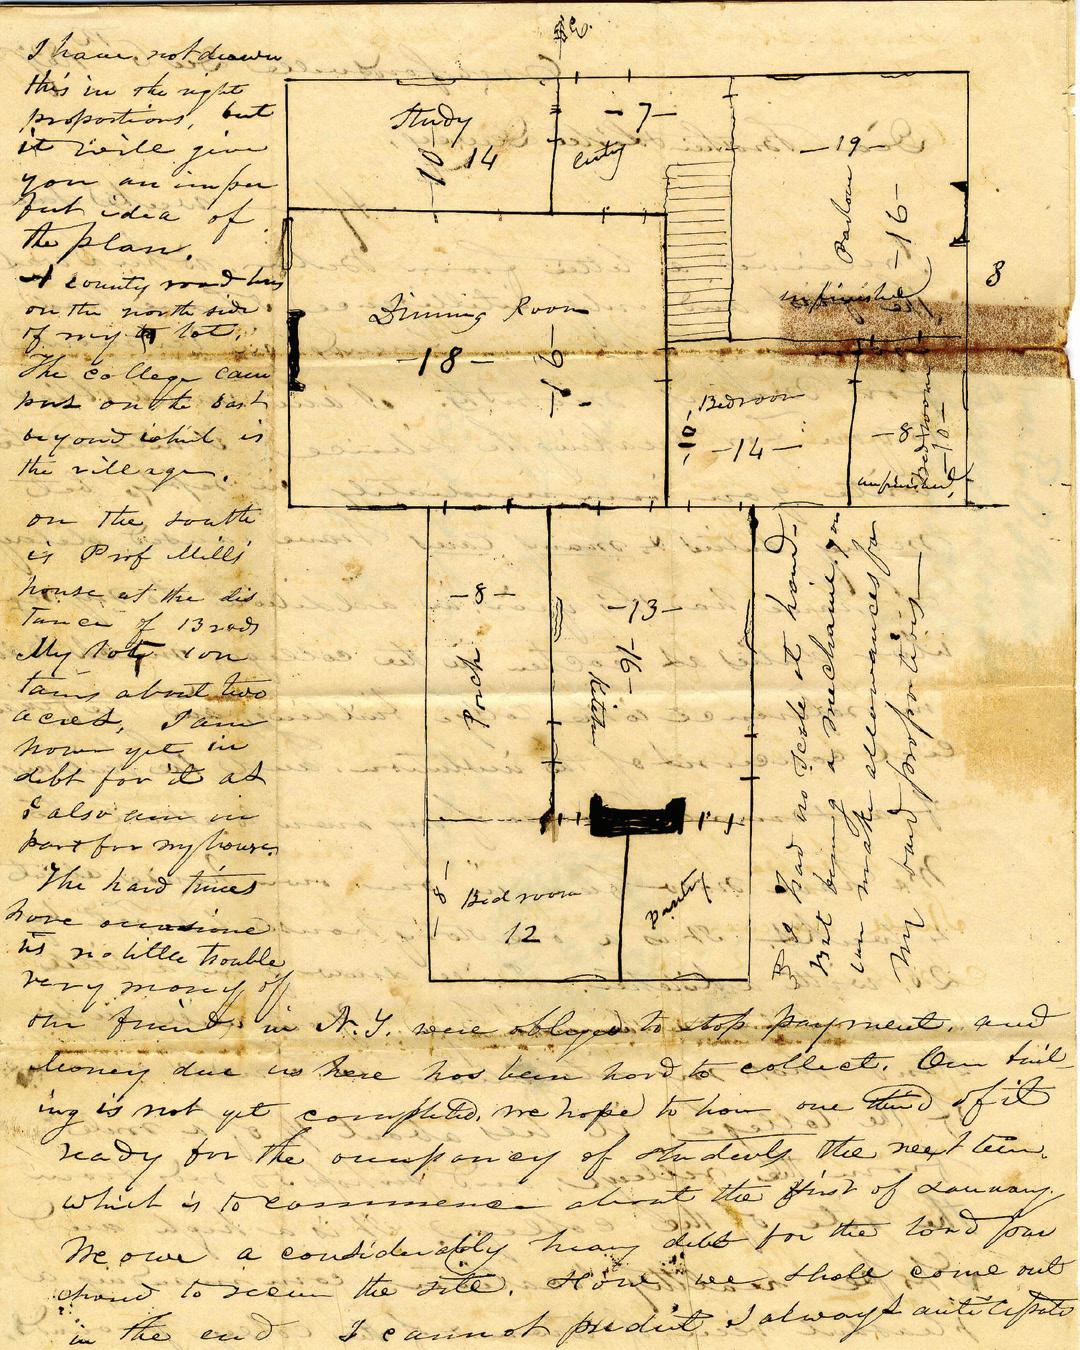 I have not drawn
this in the right
proportions, but
it will give
you an imper
fect idea of
the plan.
A county road
on the north side
of my lot.
The college cam
pus on the East
beyond which is
the village.
on the south
is Prof Mills
house at the dis
tance of 13 rods
My lot con
tains about two
acres, I am
now yet in
debt for it as
I also am in
part for my house.
The hard times
have occasioned
us no little trouble
very many of
our friends in N.Y. were obliged to stop payment, and
money due us here has been hard to collect. Our buil
ing is not yet completed, we hope to have one third of it
ready for the occupancy of students the next term.
which is to commence about the first of January.
We owe a considerably heavy debt for the land pur
chased to secure the site. How we shall come out
in the end I cannot predict I always anticipate
Study
10
14
-7-
Entry
-19-
Parlour
-16-
unfinished
8
Dinning Room
-18-
-16-
Bedroom
-10-
-14-
-8-
Bedroom
-10-
unfinished,
-8-
Porch
-13-
-16-
Kitchn
-8-
Bedroom
12
Pantry
I had no scale at hand-
But being a mechanic, you
can make allowances for
My bad proportions